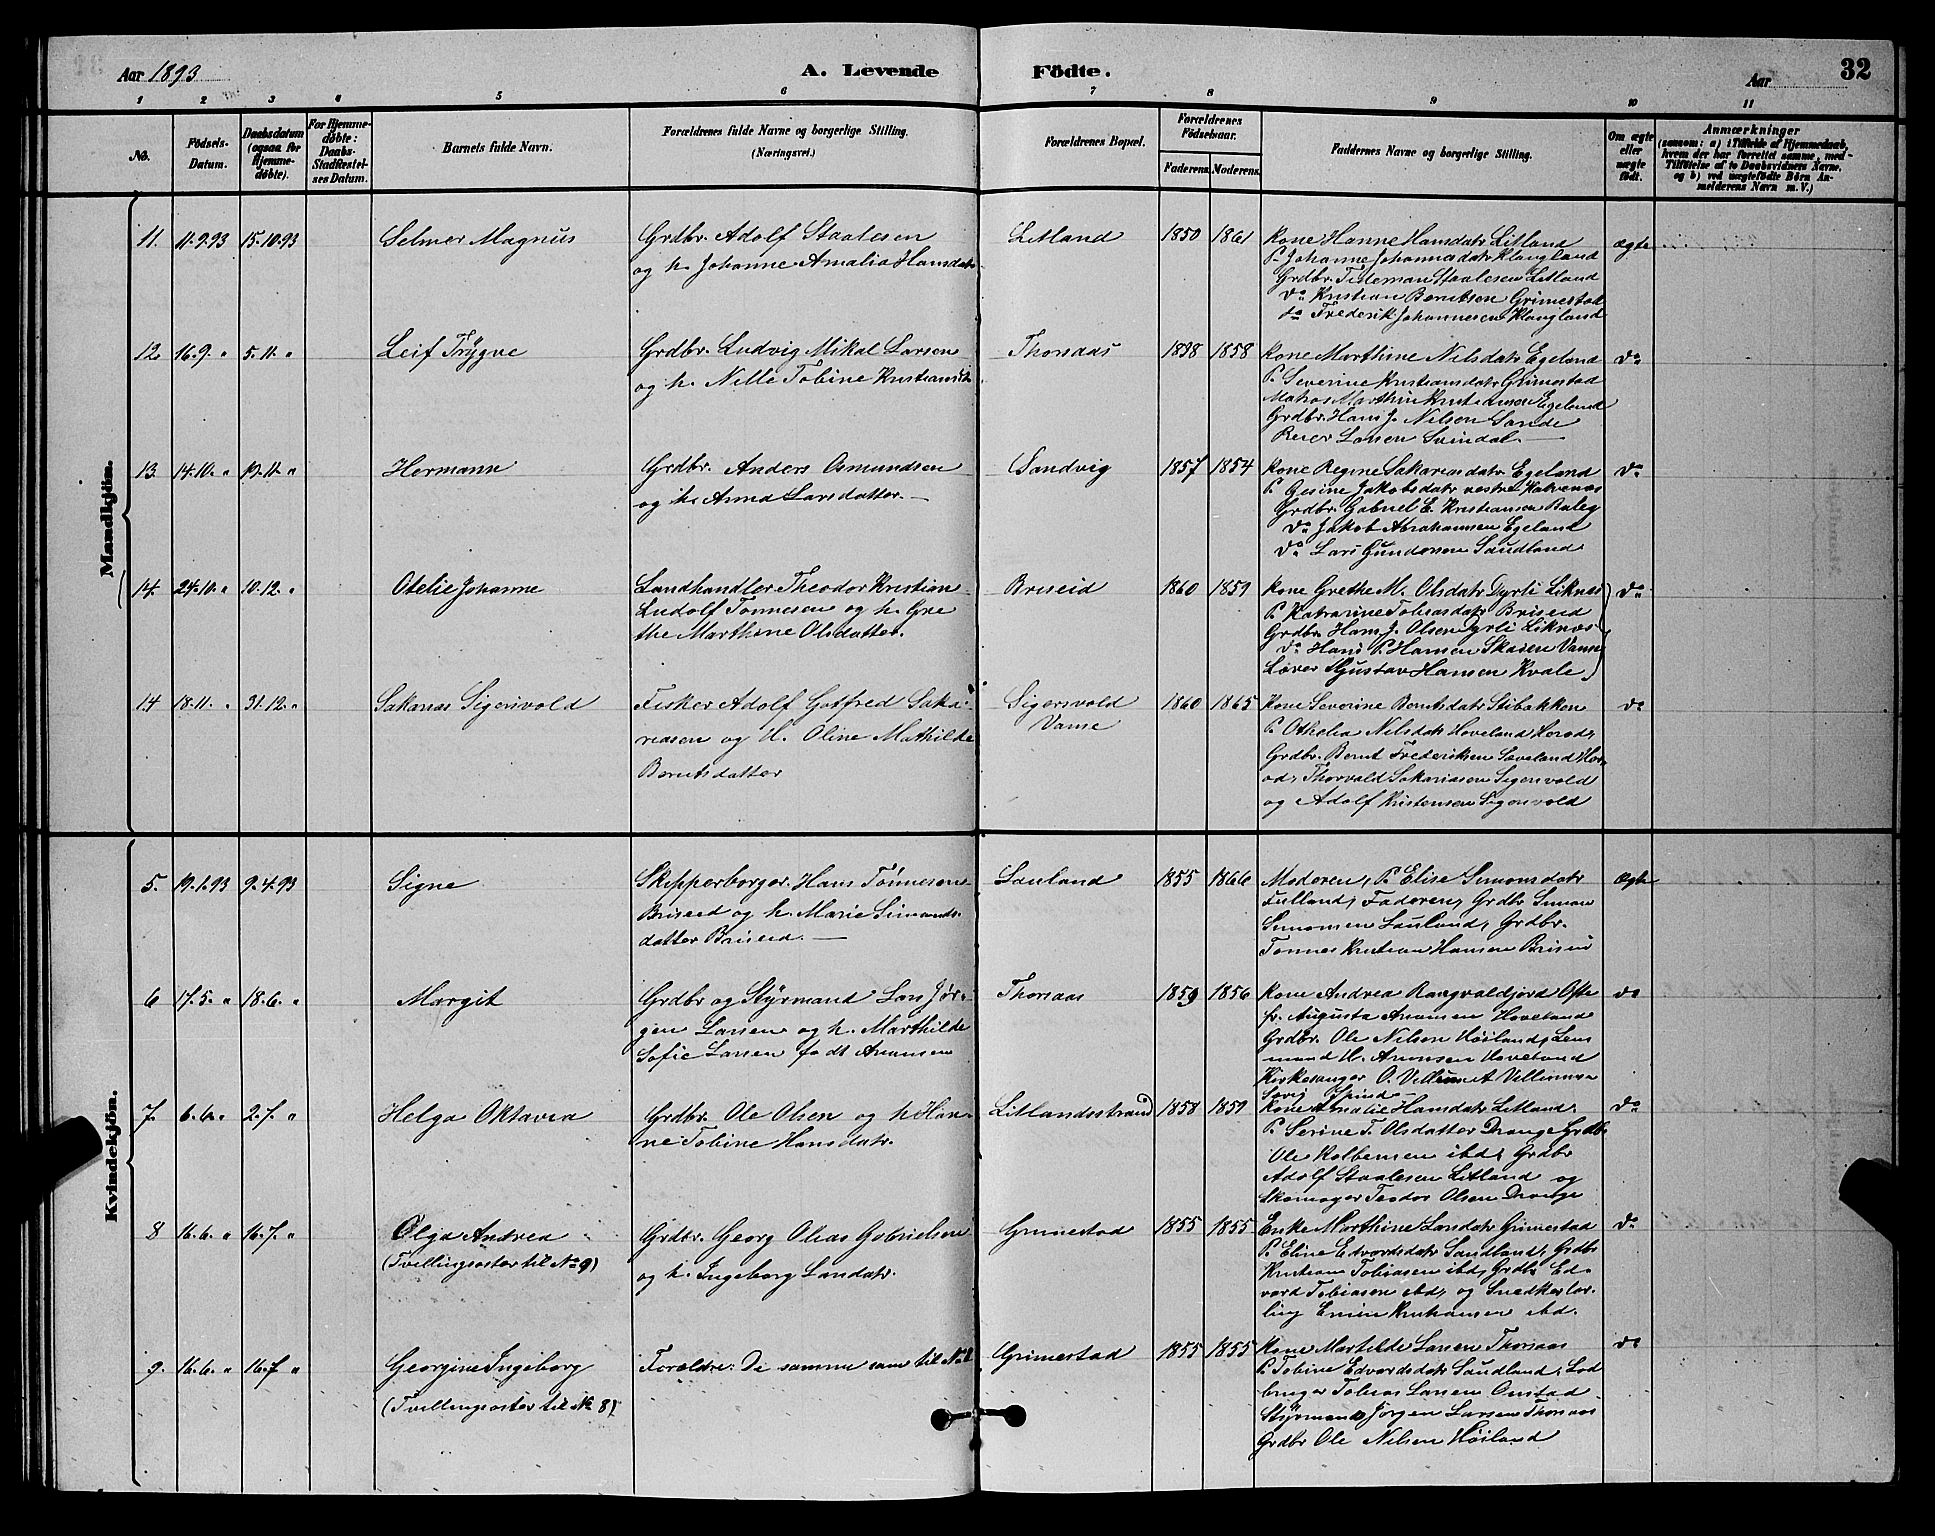 Aar 1893
A. Levende Födte.
Aar
32
1 2 3 4 5 6 7 8 9 10 11
No.
Födsels-Datum.
Daabsdatum (ogsaa for Hjemmedøbte).
For Hjemmedøbte: Daabs-Stadfæstelses Datum.
Barnets fulde Navn.
Forældrenes fulde Navne og borgerlige Stilling. (Næringsvei.)
Forældrenes Bopæl.
Forældrenes Födselsaar.
Faderens. Moderens.
Faddernes Navne og borgerlige Stilling.
Om ægte eller uægte födt.
Anmærkninger
(saasom: a) i Tilfælde af Hjemmedaab, hvem der har forrettet samme, med Tilföielse af to Daabsvidners Navne, og b) ved uægtefödte Börn Anmelderens Navn m. V.)
Mandkjön.
11. 11.9.93 15.10.93 Selmer Magnus
Grdbr. Adolf Staalesen
og h. Johanne Amalia Hansdatr
Litland 1850 1861
Kone Hanne Hansdatr Litland
P. Johanne Johannesdatr Klungland
Grdbr. Tideman Staalesen Litland
do Kristian Berntsen Grimestad
do Frederik Johannesen Klungland
ægte
12. 16.9. " 5.11. " Leif Trygve
Grdbr. Ludvig Mikal Larsen
og h. Nille Tobine Kristiansd.
Thorsaas 1838 1858
Kone Marthine Nilsdatr Egeland
P. Severine Kristiansdatr Grimestad
Matros Marthin Kristiansen Egeland
Grdbr. Hans J. Nilsen Sande
Reier Larsen Svindal.
do
13. 14.10. " 19.11. " Hermann
Grdbr. Anders Osmundsen
og h. Anna Larsdatter.
Sandvig 1857 1854
Kone Regine Sakariasdatr Egeland
P. Gesine Jakobsdatr vestre
Grdbr. Gabriel E. Kristiansen
do Jakob Abrahamsen Egeland
do Lars Gundersen Saudland
do
14. 24.10. " 10.12. " Otelie Johanne
Landhandler Theodor Kristian
Ludolf Tønnesen og h. Gre
the Marthine Olsdatter.
Briseid 1860 1859
Kone Grethe M. Olsdatr Dyrli Liknes
P. Katrarine Tobiasdatr Briseid
Grdbr. Hans J. Olsen Dyrli Liknes
do Hans P. Hansen Skaien Vanse
Lærer Gustav Hansen Kvale
do
14 18.11. " 31.12. " Sakarias Sigersvold
Fisker Adolf Gotfred Saka-
riasen og H. Oline Mathilde
Berntsdatter
Sigersvold
Vanse
1860 1865
Kone Severine Berntsdatr Stibakken
P. Othelia Nilsdatr Hoveland Herad,
Grdbr. Bernt Frederiksen Loveland Her-
ad, Thorvald Sakariasen Sigersvold
og Adolf Kristensen Sigersvold
do
Kvindekjön.
5. 19.1.93 9.4.93 Signe
Skipperborger Hans Tönnesen
Briseid og h. Marie Simons-
datter Briseid.
Lauland 1855 1866
Moderen, P. Elise Simonsdatr
Fulland, Faderen, Grdbr Simon
Simonsen Lauland, Grdbr.
Tønnes Kristian Hansen Briseid
Ægte
6 17.5. " 18.6. " Margit
Grdbr og Styrmand Lars Jør-
gen Larsen og h. Marthilde
Sofie Larsen født Aronsen
Thorsaas 1859 1856
Kone Andrea Raagvaldjord Ofte
fr. Augusta Aronsen Hoveland
Grdbr. Ole Nilsen Høiland, Lens
mand H. Aronsen Hoveland
Kirkesanger O. Villumsen
Spind
do
7. 6.6. " 2.7. " Helga Oktavia
Grdbr. Ole Olsen og h Han-
ne Tobine Hansdatr.
Litlandsstrand 1858 1859
Kone Amalie Hansdatr Litland.
P. Serine T. Olsdatter Drange Grdbr
Ole Kolbensen ibd, Grdbr
Adolf Staalesen Litland og
Skomager Teodor Olsen Drange
do
8 16.6. " 16.7. " Olga Andrea
(Tvillingsøster til No 9)
Grdbr. Georg Olias Gabrielsen
og h. Ingeborg Larsdatr.
Grimestad 1855 1855
Enke Marthine Larsdatr Grimestad
P. Eline Edvardsdatr Saudland, Grdbr
Kristian Tobiasen ibd, Grdbr. Ed-
vard Tobiasen ibd, og Snedkerlær-
ling Kristiansen ibd.
do
9. 16.6. " 16.7 " Georgine Ingeborg
(Tvillingsøster til No 8)
Forældre: De samme som til No 8
Grimestad 1855 1855
Kone Martilde Larsen Thorsaas
P. Tobine Edvardsdatr Saudland, Lod
bruger Tobias Larsen Omstad
Styrmand Jørgen Larsen Thorsaas
Grdbr Ole Nilsen Høiland
do